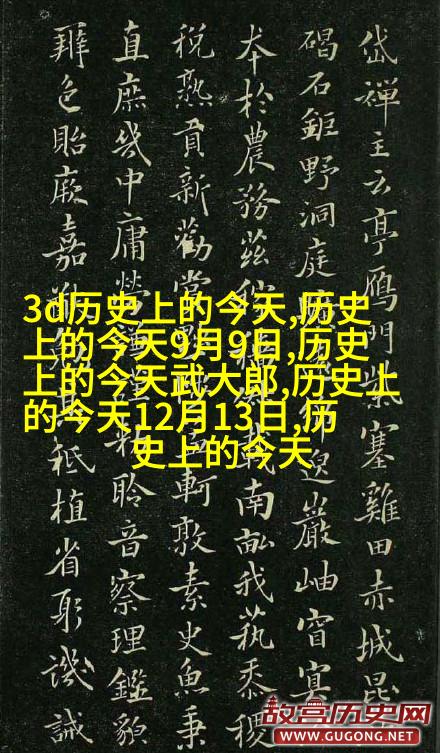 3d历史上的今天,历史
上的今天9月9日,历史
上的今天武大郎,历史上
的今天12月13日,历
史上的今天
岱禪主云亭鴈門紫塞雞田赤城昆
碣石鉅野洞庭邈巖岫窅冥
夲於農務茲載南畝我蓺黍稷
税熟貢新勸賞軻敦素史魚秉
直庶幾中庸勞聆音察理鑑貌
辯色貽厥嘉其祗植省躬譏誡
故宫历史网
WWW.GUGONG.NET